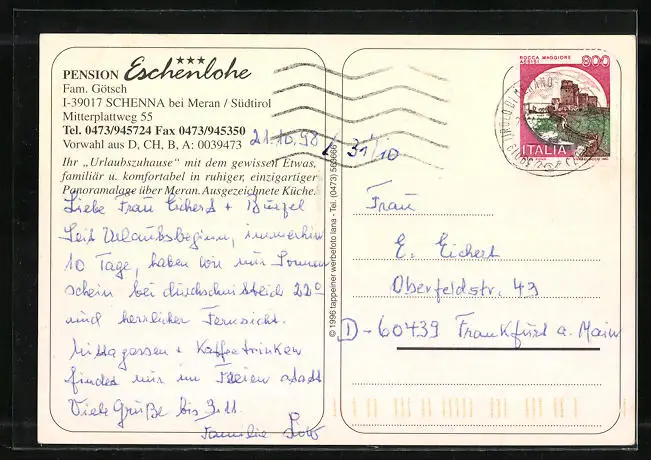 PENSION Eschenlohe
Fam. Götsch
I-39017 SCHENNA bei Meran / Südtirol
Mitterplattweg 55
Tel. 0473/945724 Fax 0473/945350
Vorwahl aus D, CH, B, A: 0039473
Ihr „Urlaubszuhause" mit dem gewissen Etwas,
familiär u. komfortabel in ruhiger, einzigartiger
Panoramalage über Meran. Ausgezeichnete Küche.
21.10.98
31/10
Liebe Frau Eichert +
Seit Urlaubsbeginn, immerhin
10 Tage, haben wir nur Sonnen
schein bei durchschnittlich 22°
und herrlicher Fernsicht.
Mittagessen + Kaffeetrinken
findet nur im Freien statt
Viele Grüße bis 3.11.
Familie
© 1996 tappeiner werbefoto lana - Tel. (0473)
ROCCA MAGGIORE
ASSISI
800
ITALIA
Frau
E. Eichert
Oberfeldstr. 43
D-60439 Frankfurt a. Main